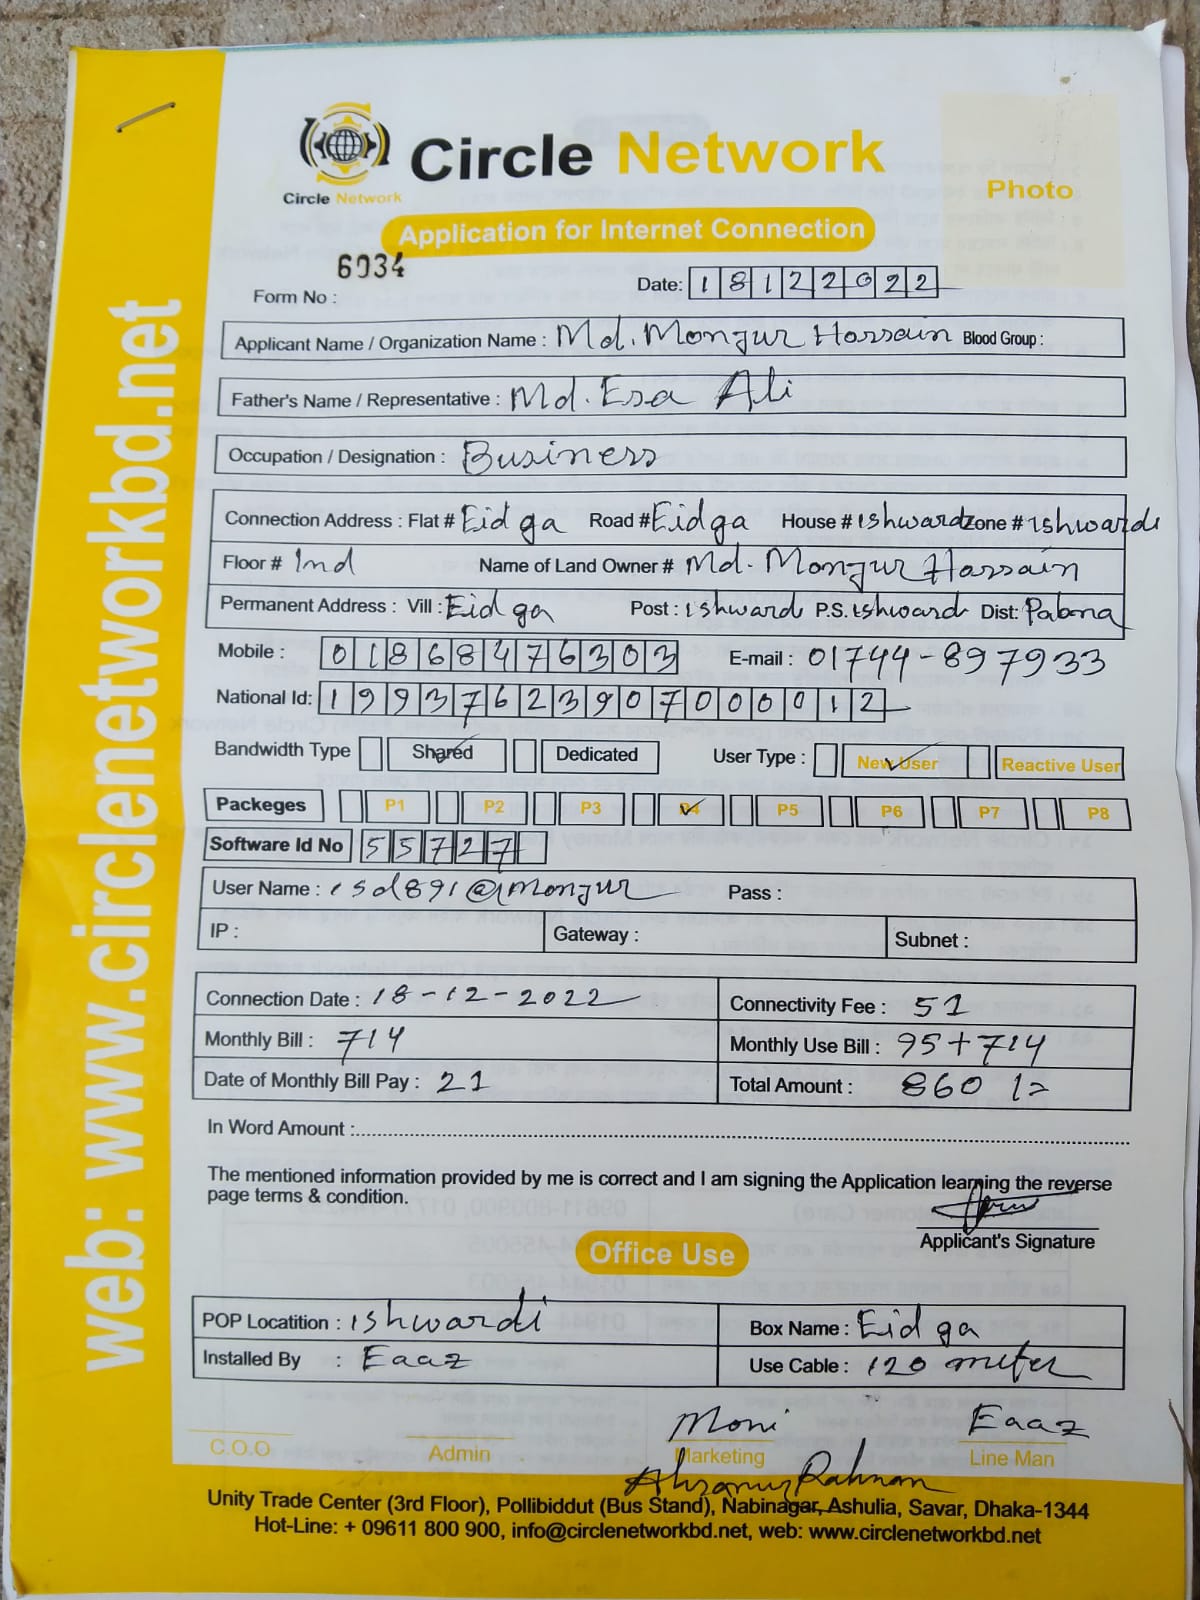 Circle Network
Circle Network
Photo
Application for Internet Connection
6034
Form No :
Date: 18122022
Applicant Name / Organization Name : Md. Monjur Hossain Blood Group :
Father's Name / Representative : Md. Esa Ali
Occupation / Designation : Business
Connection Address : Flat # Eidga Road # Eidga House # ishwardi Zone # ishwardi
Floor # 1nd Name of Land Owner # Md. Monjur Hossain
Permanent Address : Vill : Eidga Post : ishwardi P.S. ishwardi Dist: Pabna
Mobile : 01868476303 E-mail : 01744-897933
National Id: 19937623907000012
Bandwidth Type Shared Dedicated User Type : New User Reactive User
Packeges P1 P2 P3 P4 P5 P6 P7 P8
Software Id No 55727
User Name : isd891@monjur Pass :
IP : Gateway : Subnet :
Connection Date : 18-12-2022 Connectivity Fee : 51
Monthly Bill : 714 Monthly Use Bill : 95+714
Date of Monthly Bill Pay : 21 Total Amount : 860 /=
In Word Amount :
The mentioned information provided by me is correct and I am signing the Application learning the reverse
page terms & condition.
Applicant's Signature
Office Use
POP Locatition : ishwardi Box Name : Eidga
Installed By : Eaaz Use Cable : 120 meter
Moni Eaaz
C.O.O Admin Marketing Line Man
Ahsanur Rahman
Unity Trade Center (3rd Floor), Pollibiddut (Bus Stand), Nabinagar, Ashulia, Savar, Dhaka-1344
Hot-Line: + 09611 800 900, info@circlenetworkbd.net, web: www.circlenetworkbd.net
web: www.circlenetworkbd.net